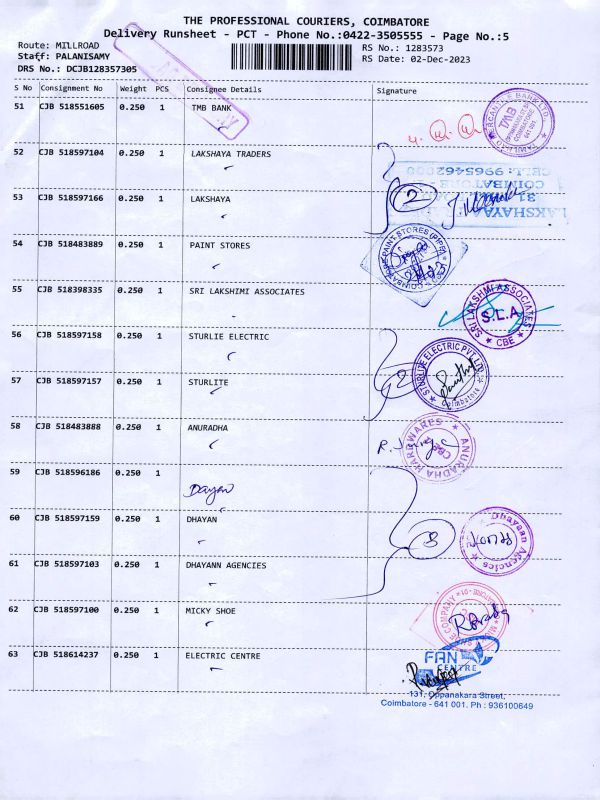 THE PROFESSIONAL COURIERS, COIMBATORE
Delivery Runsheet - PCT - Phone No.:0422-3505555 - Page No.:5
Route: MILLROAD
RS No.: 1283573
Staff: PALANISAMY
RS Date: 02-Dec-2023
DRS No.: DCJB128357305
S No Consignment No Weight PCS Consignee Details Signature
51 CJB 518551605 0.250 1 TMB BANK
TMB
52 CJB 518597104 0.250 1 LAKSHAYA TRADERS
CELL: 9965462000
COIMBATORE
31
LAKSHAYA
53 CJB 518597166 0.250 1 LAKSHAYA
2
54 CJB 518483889 0.250 1 PAINT STORES
PAINT STORES (PIPE)
55 CJB 518398335 0.250 1 SRI LAKSHIMI ASSOCIATES
SRI LAKSHMI ASSOCIATES
S.L.A
CBE
56 CJB 518597158 0.250 1 STURLIE ELECTRIC
STURLITE ELECTRIC PVT. LTD.
Coimbatore
57 CJB 518597157 0.250 1 STURLITE
2
58 CJB 518483888 0.250 1 ANURADHA
ANURADHA HARDWARES
CBE
59 CJB 518596186 0.250 1
Dayan
60 CJB 518597159 0.250 1 DHAYAN
3
Dhayaan Agencies
61 CJB 518597103 0.250 1 DHAYANN AGENCIES
62 CJB 518597100 0.250 1 MICKY SHOE
63 CJB 518614237 0.250 1 ELECTRIC CENTRE
FAN
CENTRE
131, Oppanakara Street,
Coimbatore - 641 001. Ph : 936100649